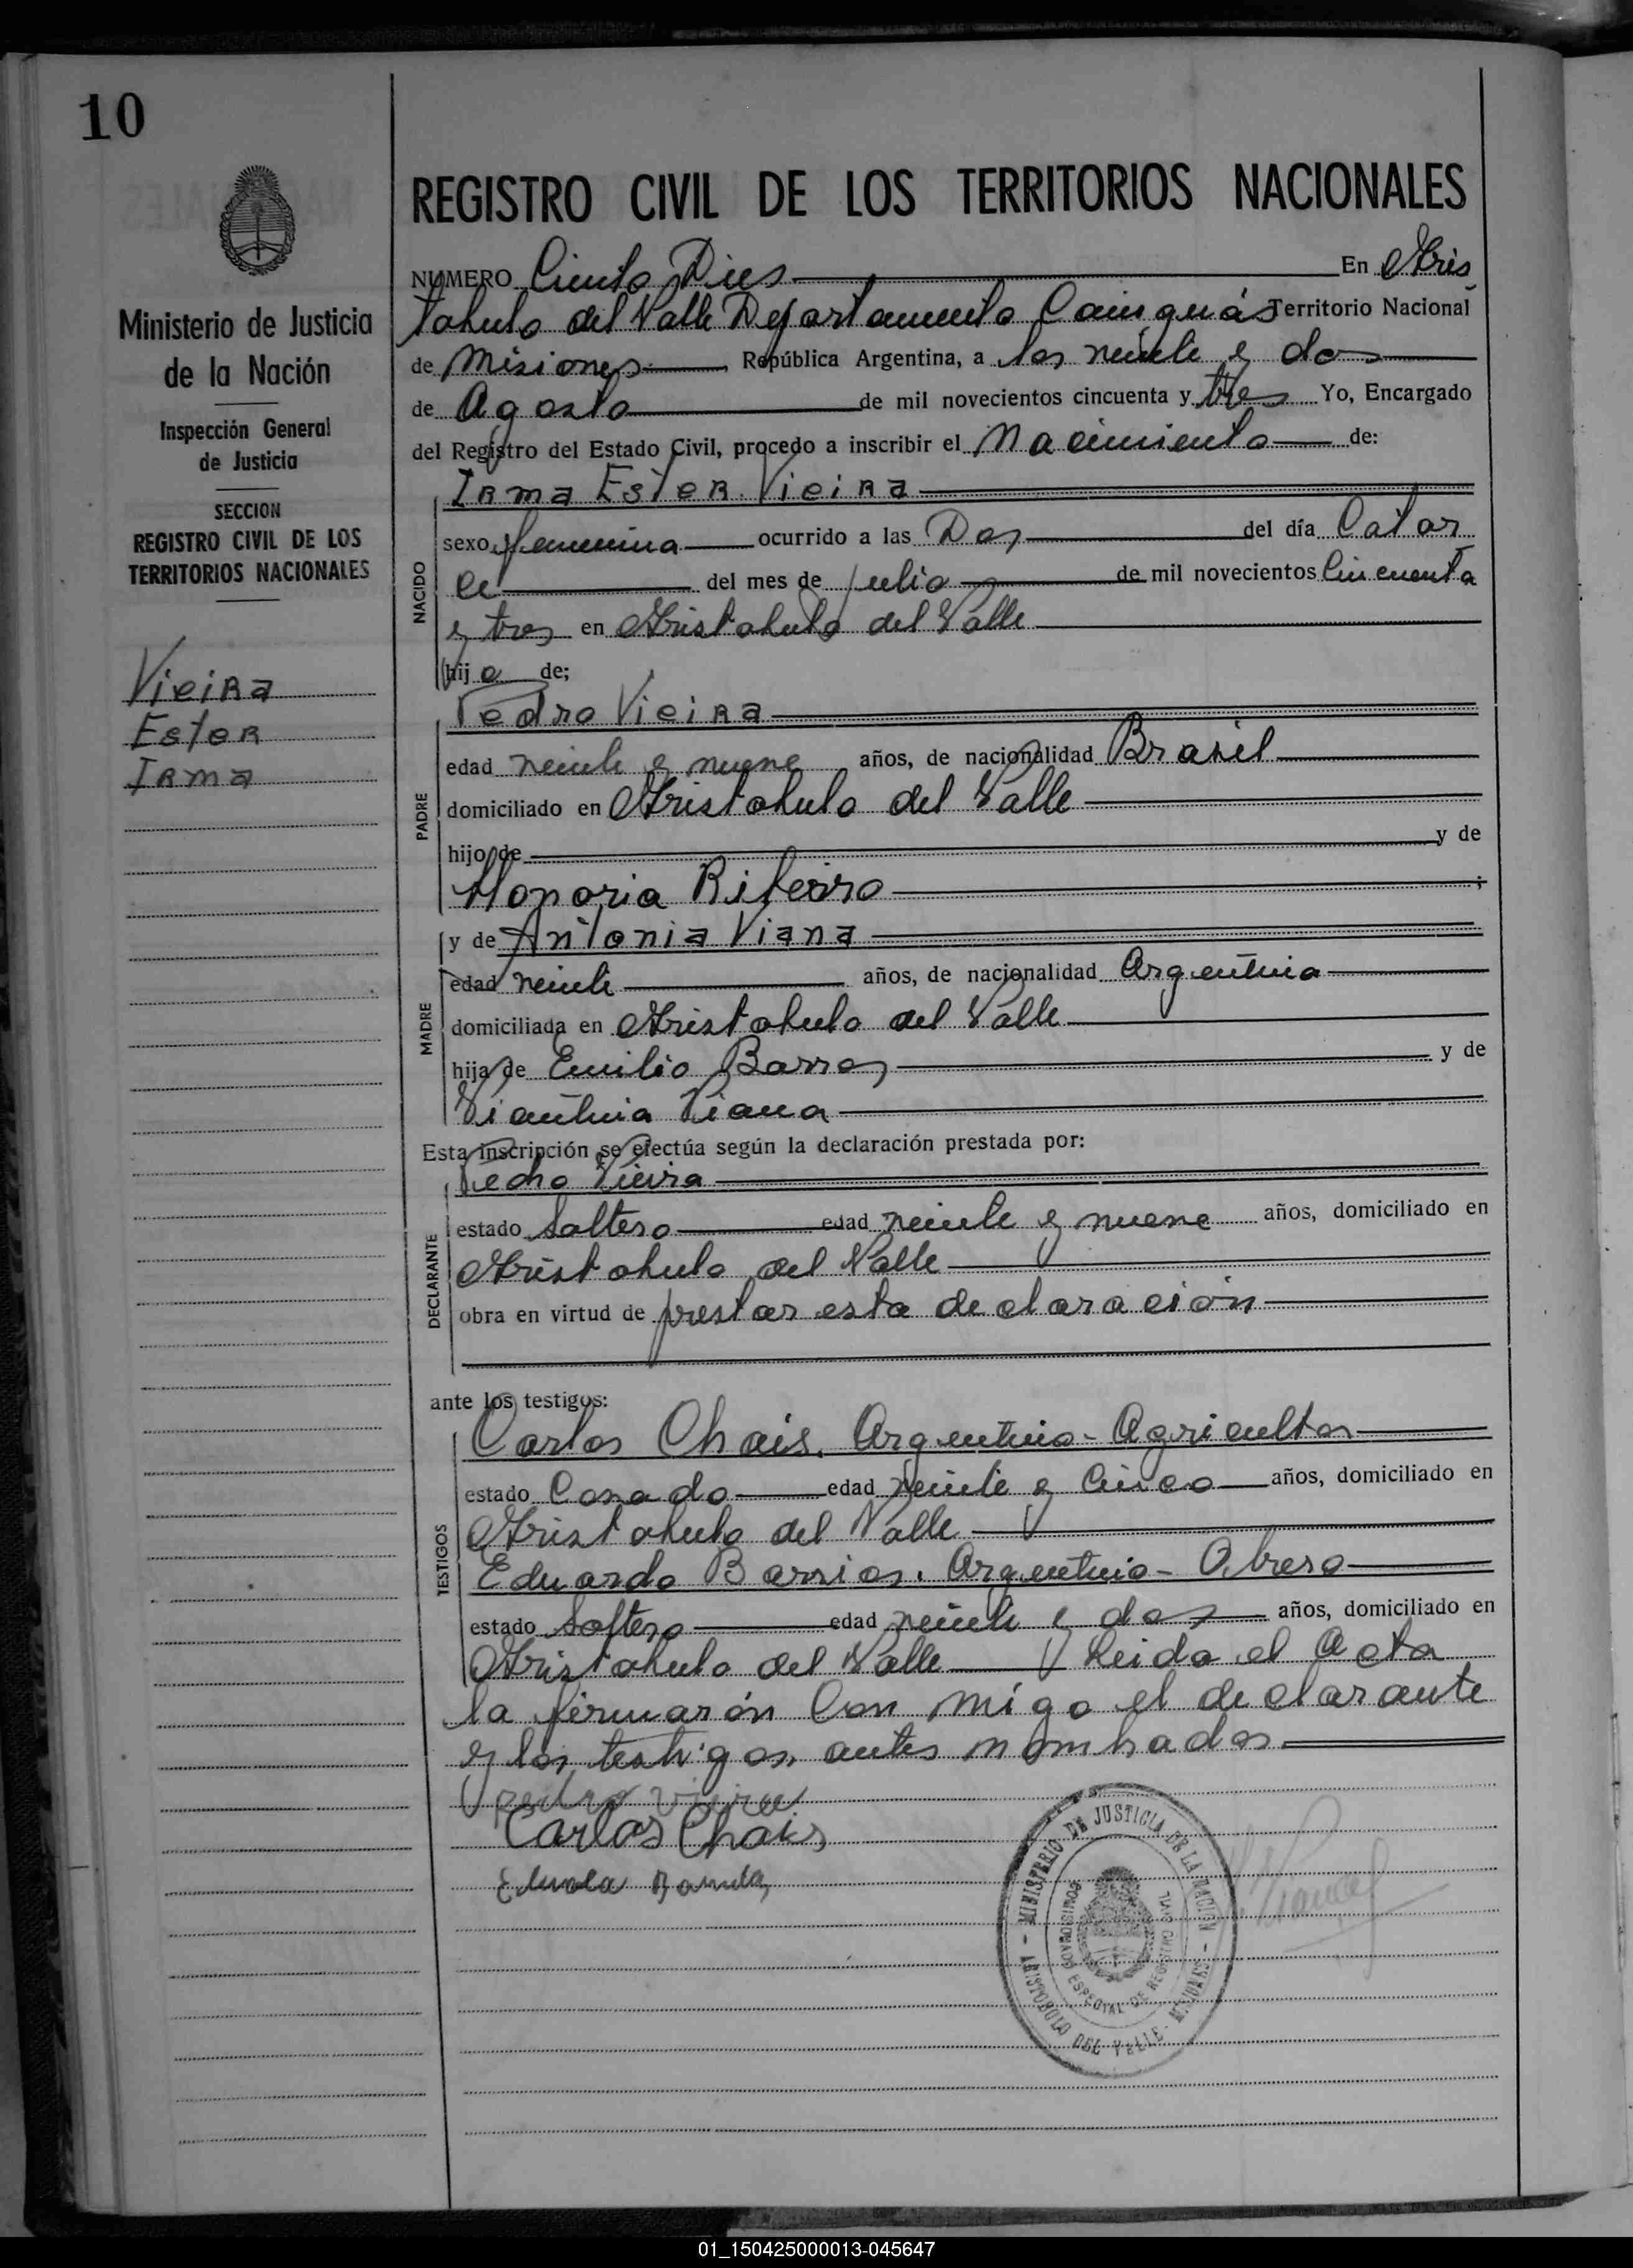 10
Ministerio de Justicia
de la Nación
Inspección General
de Justicia
SECCION
REGISTRO CIVIL DE LOS
TERRITORIOS NACIONALES
Vieira
Ester
Irma
REGISTRO CIVIL DE LOS TERRITORIOS NACIONALES
NUMERO Ciento Dies En Aris
tobulo del Valle Departamento Cainguás Territorio Nacional
de Misiones República Argentina, a los veinte y dos
de Agosto de mil novecientos cincuenta y tres Yo, Encargado
del Registro del Estado Civil, procedo a inscribir el Nacimiento de:
Irma Ester Vieira
NACIDO
sexo femenina ocurrido a las Dos del día Cator
ce del mes de Julio de mil novecientos Cincuenta
y tres en Aristobulo del Valle
hija de;
Pedro Vieira
PADRE
edad veinte y nueve años, de nacionalidad Brasil
domiciliado en Aristobulo del Valle
hijo de y de
Honoria Ribeiro ;
y de Antonia Viana
MADRE
edad veinte años, de nacionalidad Argentina
domiciliada en Aristobulo del Valle
hija de Emilio Barros y de
Viana
Esta inscripción se efectúa según la declaración prestada por:
Pedro Vieira
DECLARANTE
estado Soltero edad veinte y nueve años, domiciliado en
Aristobulo del Valle
obra en virtud de prestar esta declaración
ante los testigos:
TESTIGOS
Carlos Chais. Argentino - Agricultor
estado Casado edad veinte y Cinco años, domiciliado en
Aristobulo del Valle
Eduardo Barrios. Argentino - Obrero
estado Soltero edad veinte y dos años, domiciliado en
Aristobulo del Valle Leida el Acta
la firmarón Con migo el declarante
y los testigos antes nombrados
pedro vieira
Carlos Chais
MINISTERIO DE JUSTICIA DE LA NACION
ESPECIAL DE REGISTRO CIVIL
ARISTOBULO DEL VALLE - MISIONES
01_150425000013-045647